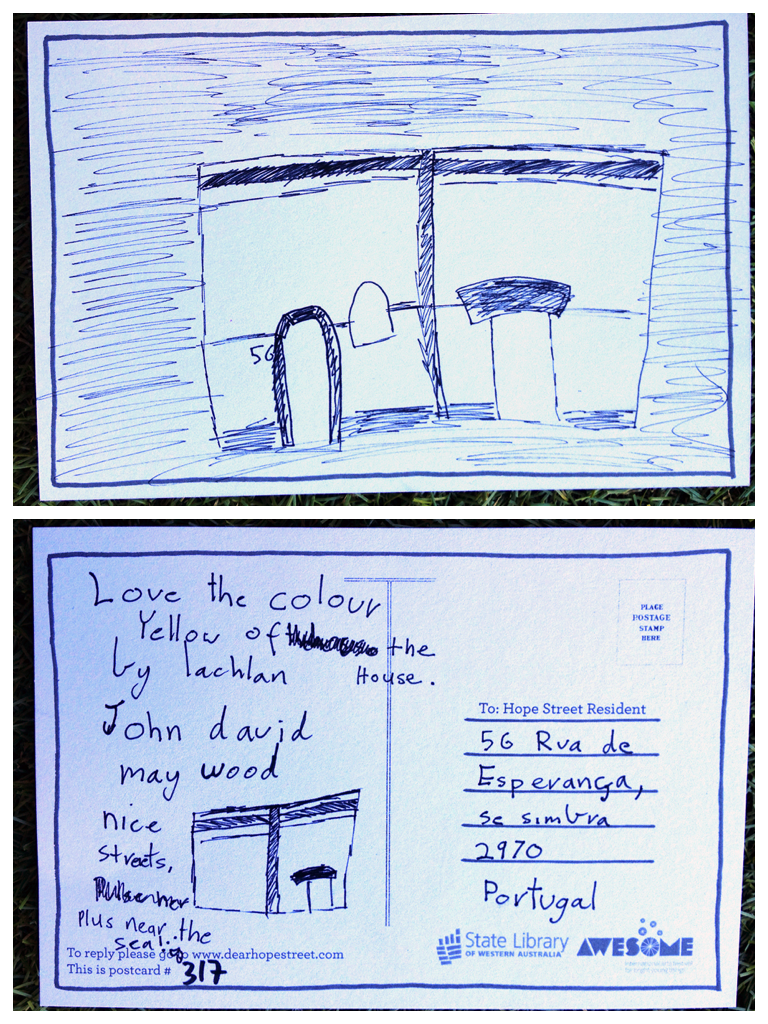 56
Love the colour
Yellow of the
House.
by lachlan
John david
may wood
nice
streets,
Plus near the
sea!
To reply please go to www.dearhopestreet.com
This is postcard # 317
PLACE
POSTAGE
STAMP
HERE
To: Hope Street Resident
56 Rua de
Esperança,
se simbra
2970
Portugal
State Library
OF WESTERN AUSTRALIA
AWESOME